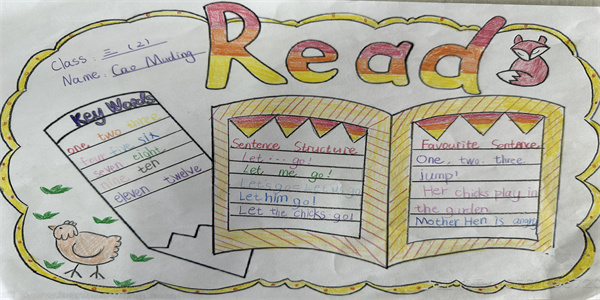 Read
Class: 三（2）
Name: Cao
Key Words
one two three
four five six
seven eight
nine ten
eleven twelve
Sentence Structure
Let ... go!
Let me go!
Let him go!
Let the chicks go!
Favourite Sentence
One, two, three
jump!
Her chicks play in
the garden
Mother Hen is angry